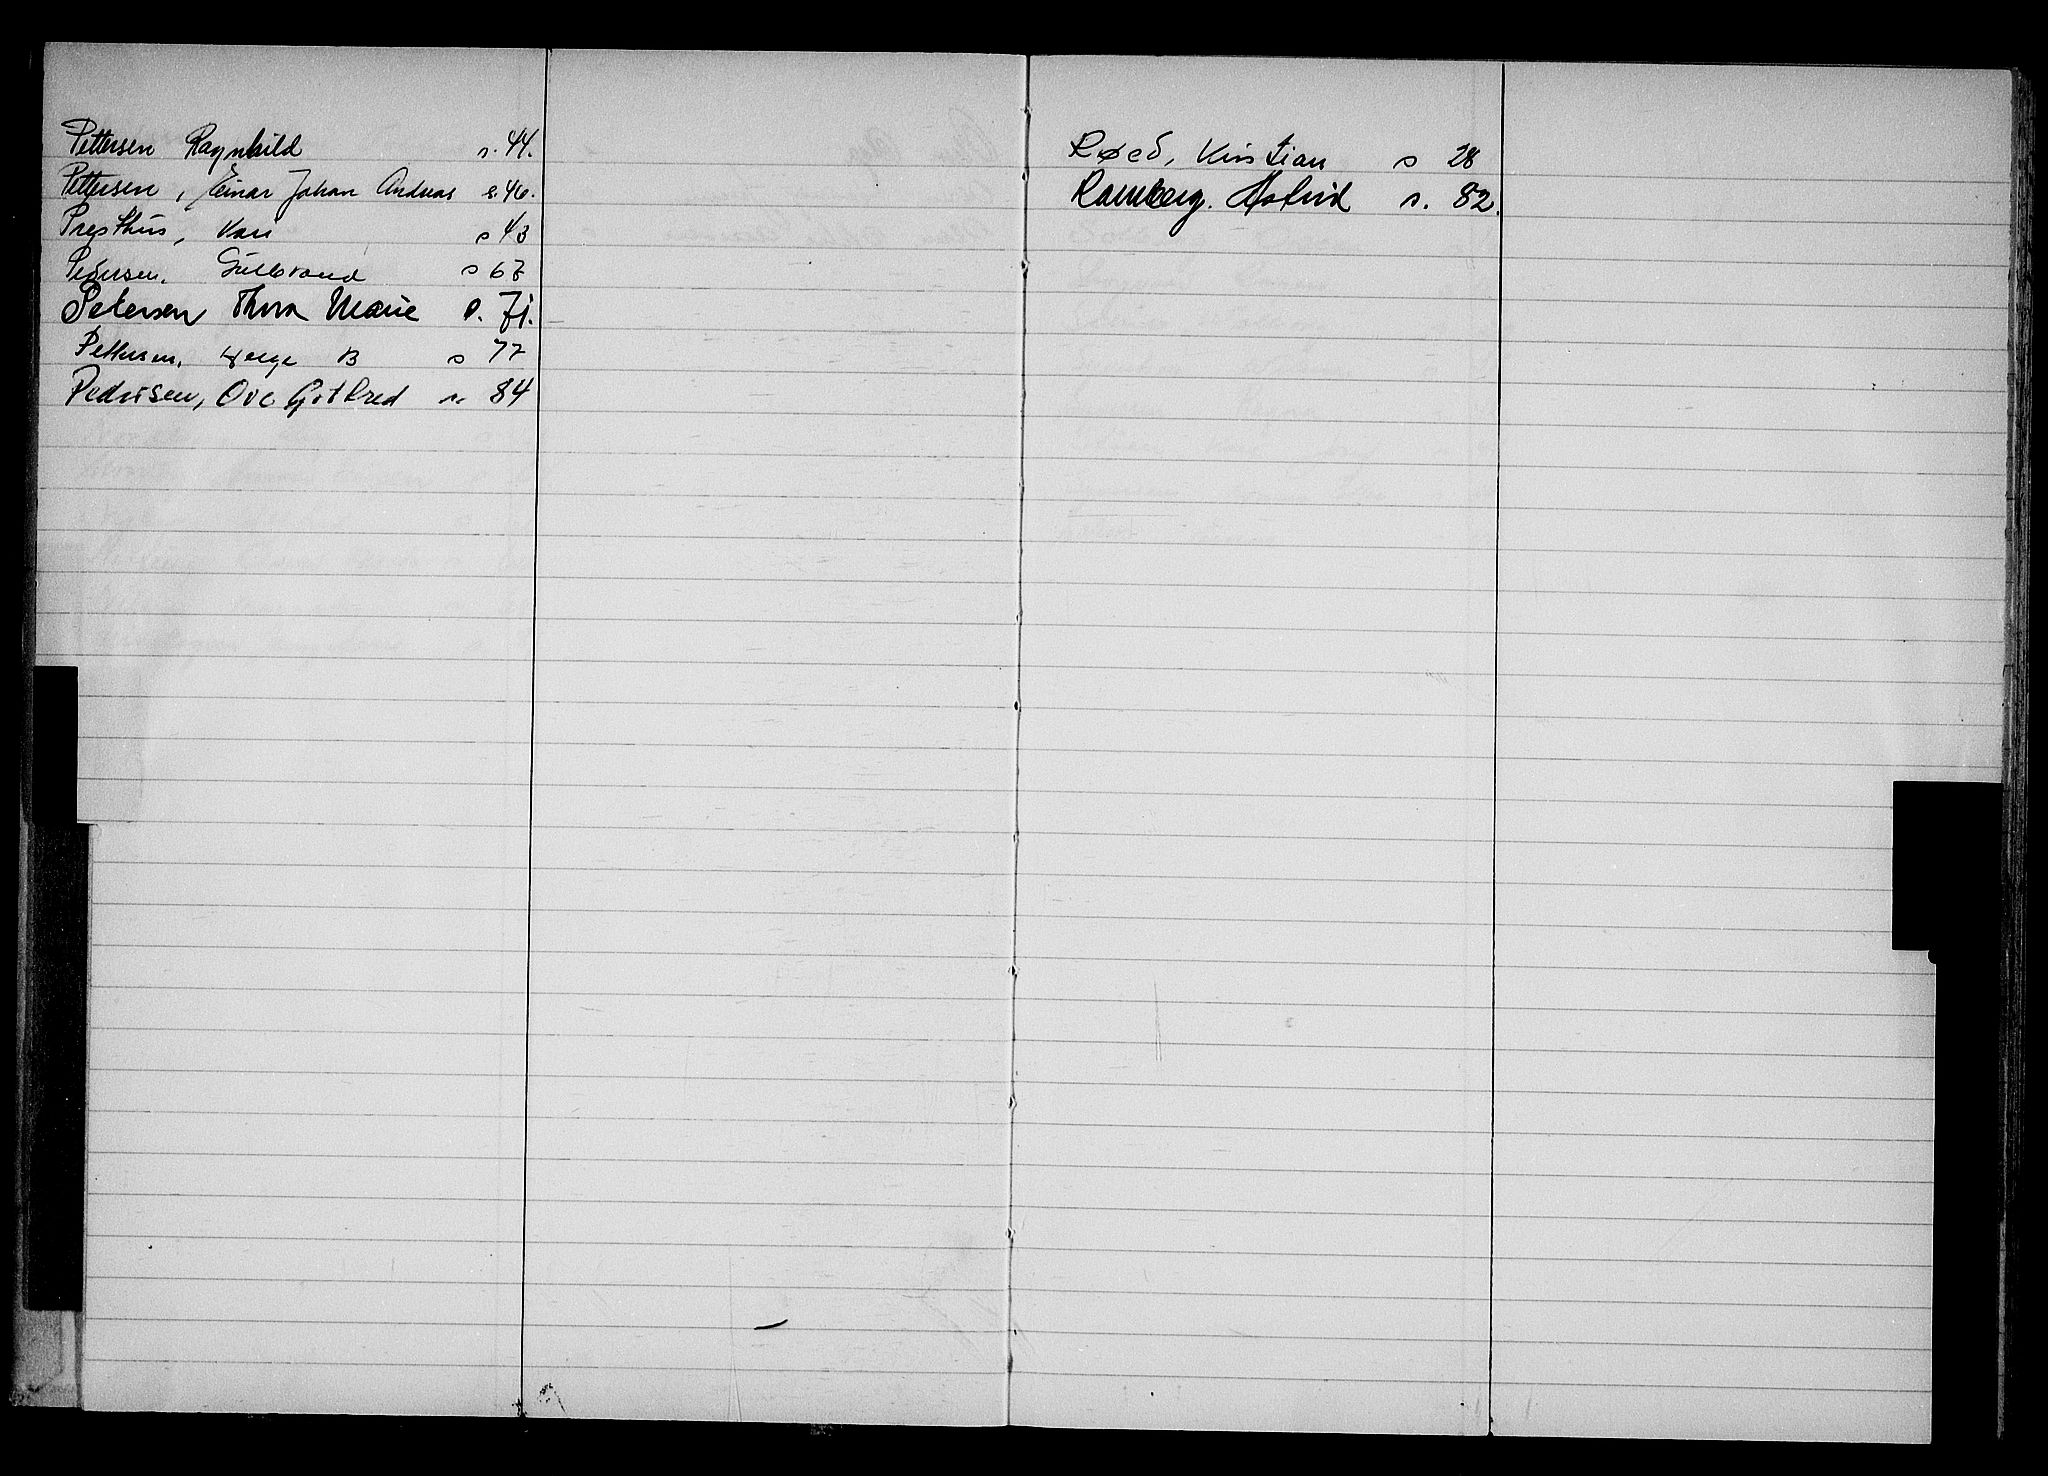 Pettersen Ragnhild s. 44.
Pettersen, Einar Johan Andreas s. 46.
Presthus, Kari s 43
Pedersen, Gulbrand s 67
Petersen Thora Marie s. 71.
Pettersen, Helge B s 77
Pedersen, Ove Gotfred s. 84
Røed, Kristian s 28
Ramberg. Astrid s. 82.